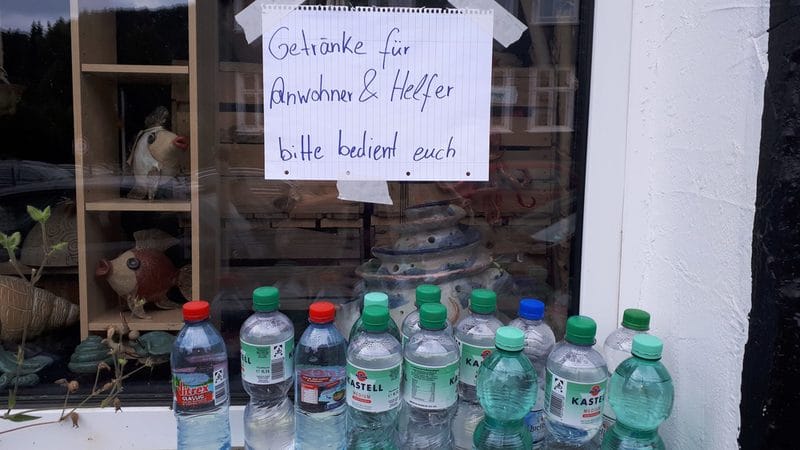 Getränke für
Anwohner & Helfer
bitte bedient euch
KASTELL
KASTELL
MEDIUM
KASTELL
MEDIUM